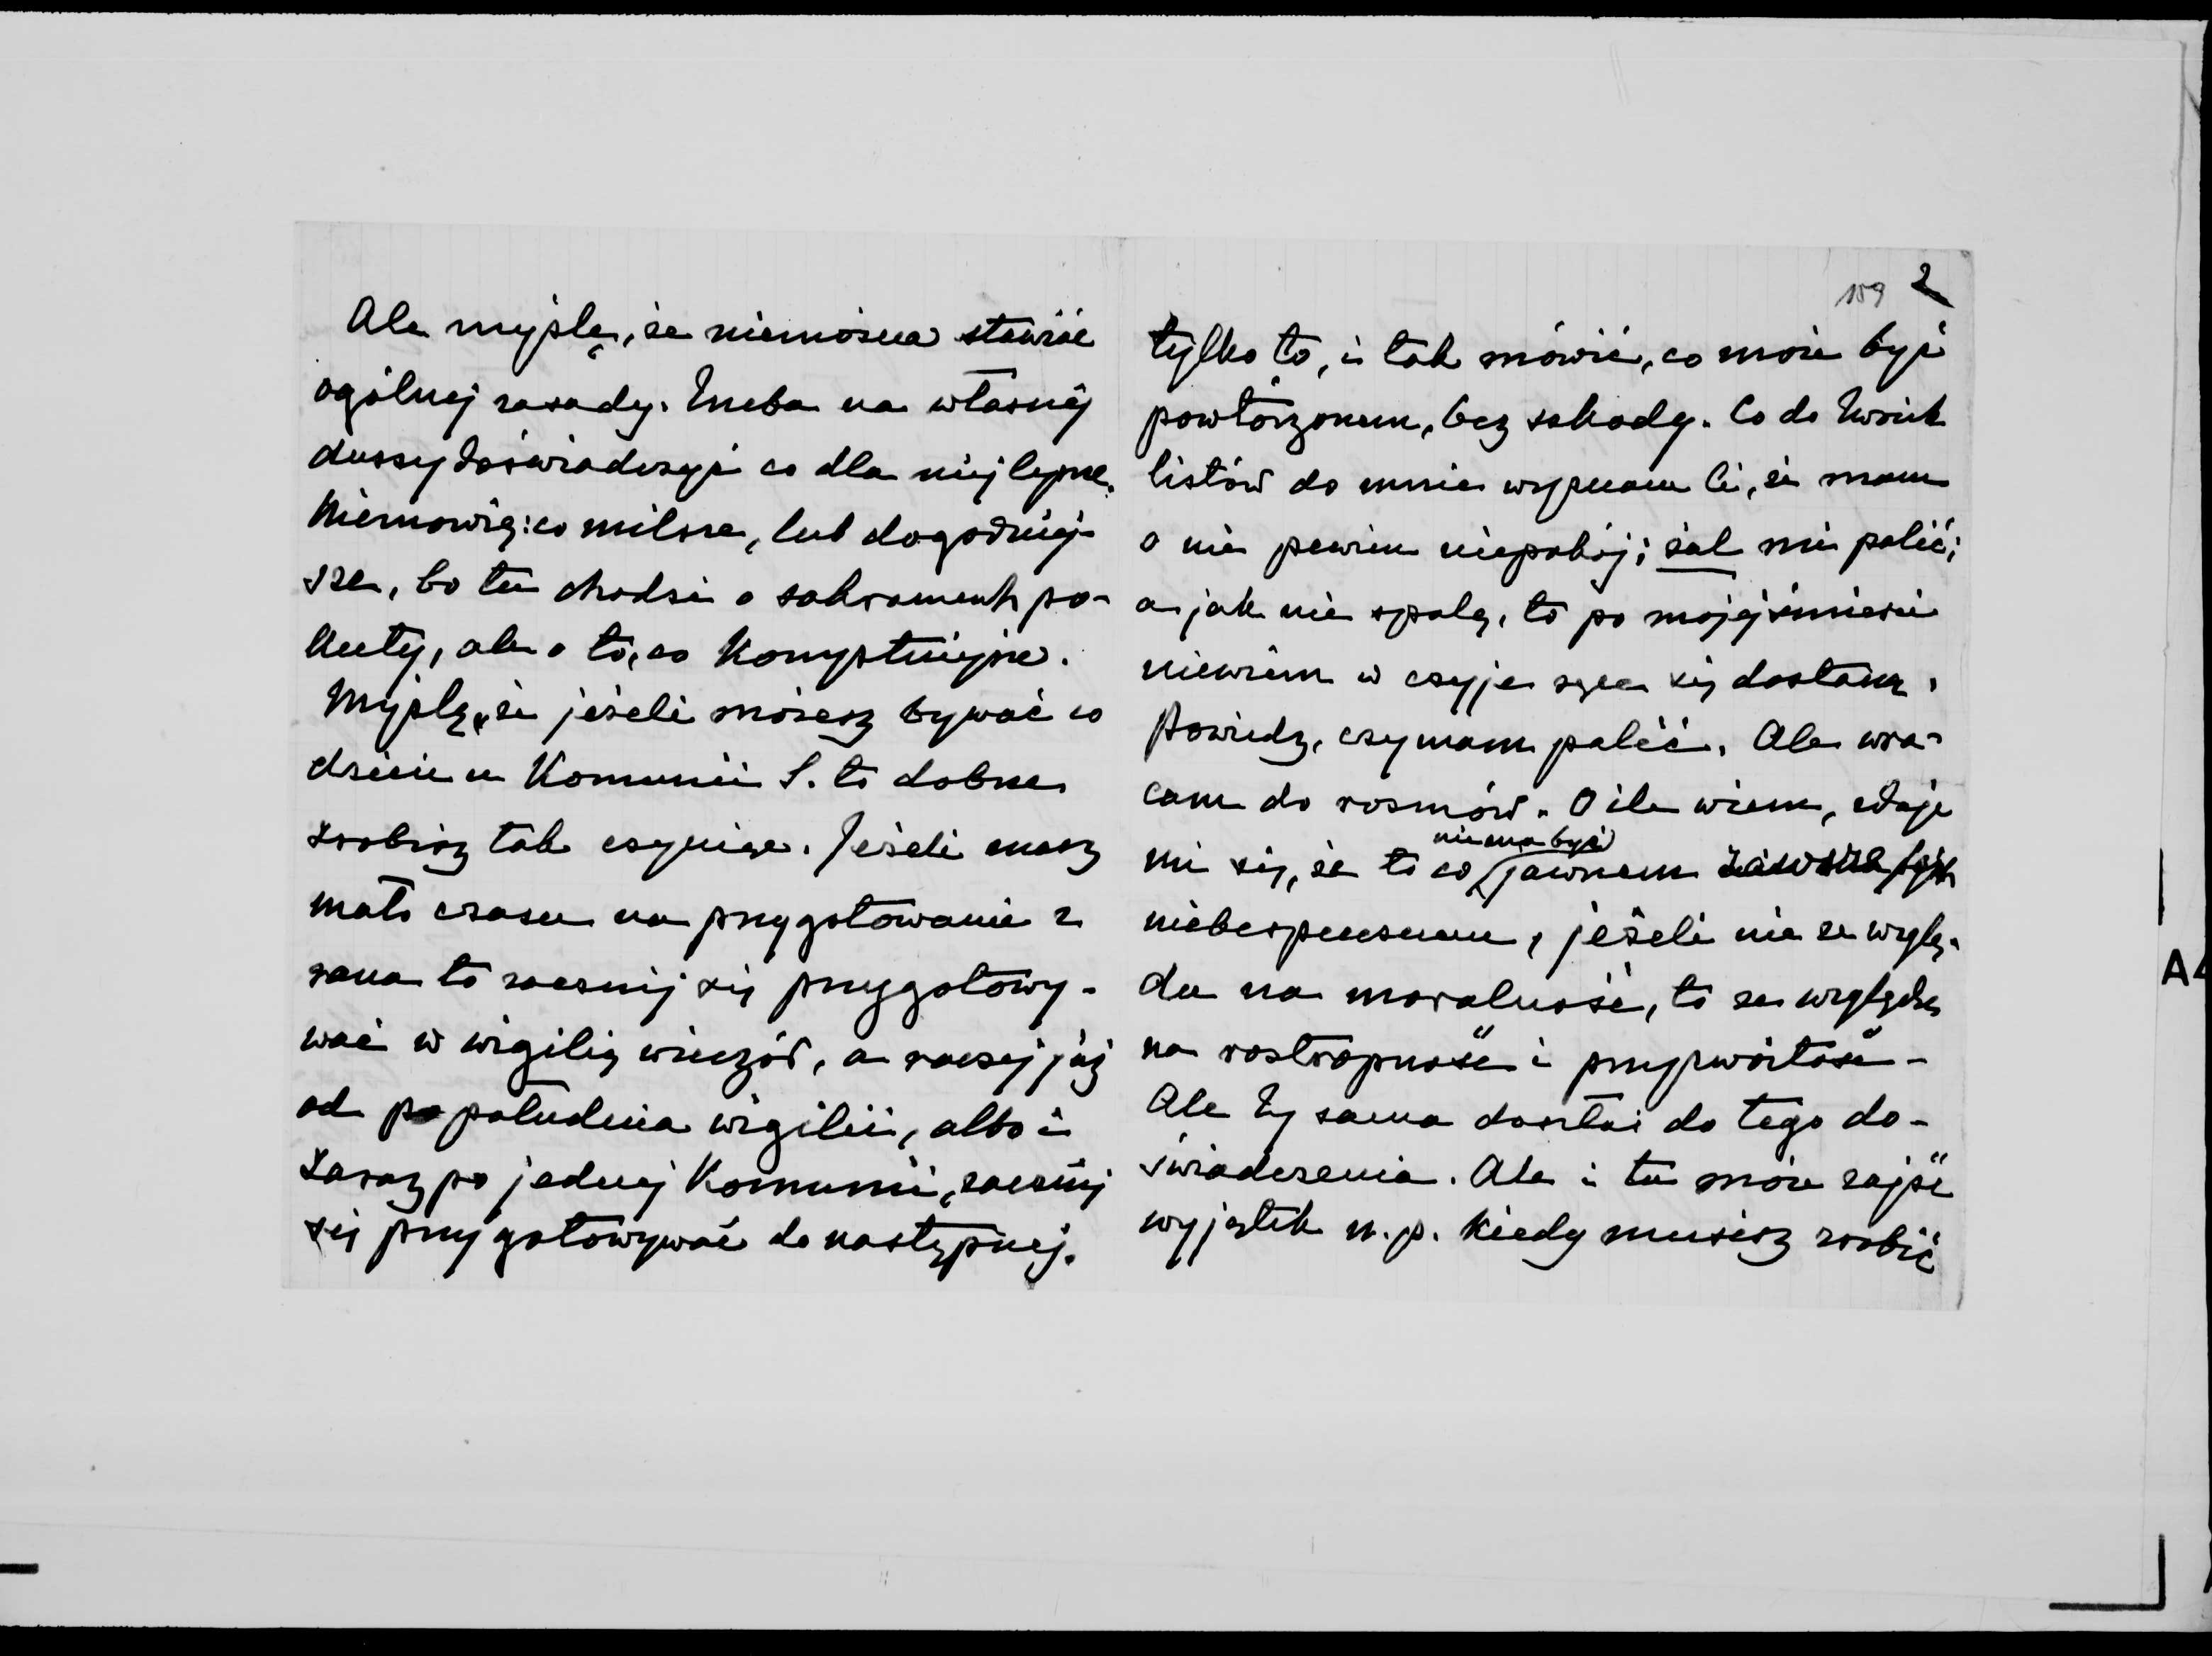 Ale myślę, że niemożna stawiać
ogólnej zasady. Trzeba na własnej
duszy doświadczyć co dla niej lepsze.
Niemówię: co milsze, lub dogodniej-
sze, bo tu chodzi o sakrament po-
kuty, ale o to, co korzystniejsze.
Myślę, że jeżeli możesz bywać co
dzień u Komunii S. to dobrze
zrobisz tak czyniąc. Jeżeli masz
mało czasu na przygotowanie z
rana to zacznij się przygotowy-
wać w wigilię wieczór, a raczej już
od popołudnia wigilii, albo i
zaraz po jednej Komunii, zacznij
się przygotowywać do następnej.
159 2
tylko to, i tak mówić, co może być
powtórzonem, bez szkody. Co do Twoich
listów do mnie wyznam Ci, że mam
o nie pewien niepokój; żal mi palić;
a jak nie spalę, to po mojej śmierci
niewiem w czyje ręce się dostaną.
Powiedz, czy mam palić. Ale wra-
cam do rozmów. O ile wiem, zdaje
mi się, że to co niema być jawnem
niebezpiecznem, jeżeli nie ze wzglę-
du na moralność, to ze względu
na roztropność i przyzwoitość-
Ale Ty sama doszłaś do tego do-
świadczenia. Ale i tu może zajść
wyjątek n.p. kiedy musisz zrobić
A4